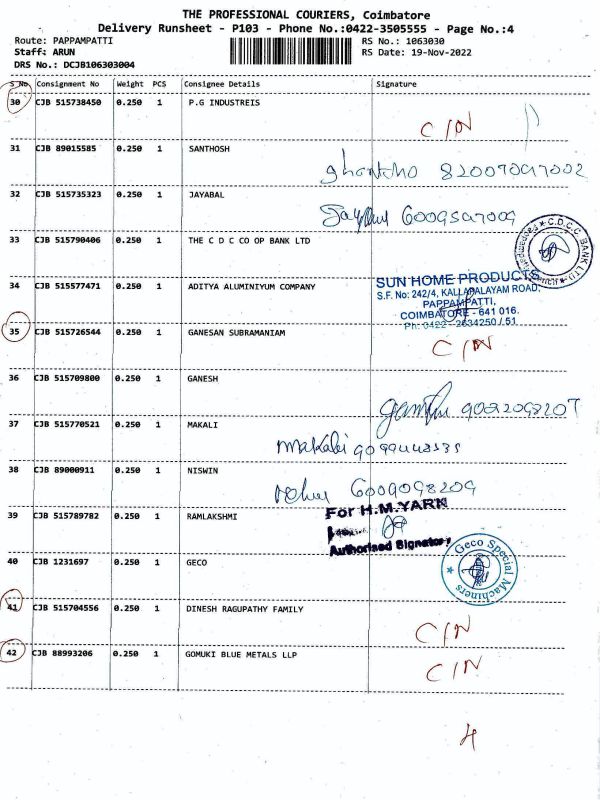 THE PROFESSIONAL COURIERS, Coimbatore
Delivery Runsheet - P103 - Phone No.:0422-3505555 - Page No.:4
Route: PAPPAMPATTI RS No.: 1063030
Staff: ARUN RS Date: 19-Nov-2022
DRS No.: DCJB106303004
S No Consignment No Weight PCS Consignee Details Signature
30 CJB 515738450 0.250 1 P.G INDUSTREIS
C/N
31 CJB 89015585 0.250 1 SANTHOSH
82007097002
32 CJB 515735323 0.250 1 JAYABAL
6009509009
33 CJB 515790406 0.250 1 THE C D C CO OP BANK LTD
C.D.C.C. BANK LTD
34 CJB 515577471 0.250 1 ADITYA ALUMINIYUM COMPANY
SUN HOME PRODUCTS
S.F. No: 242/4, KALLAPALAYAM ROAD,
PAPPAMPATTI,
COIMBATORE - 641 016.
Ph: 0422 - 2634250 / 51
35 CJB 515726544 0.250 1 GANESAN SUBRAMANIAM
C/N
36 CJB 515709800 0.250 1 GANESH
37 CJB 515770521 0.250 1 MAKALI
Makali
38 CJB 89000911 0.250 1 NISWIN
6009098209
39 CJB 515789782 0.250 1 RAMLAKSHMI
For H.M.YARN
Authorised Signatory
40 CJB 1231697 0.250 1 GECO
Geco Special Machiners
41 CJB 515704556 0.250 1 DINESH RAGUPATHY FAMILY
C/N
42 CJB 88993206 0.250 1 GOMUKI BLUE METALS LLP
C/N
4